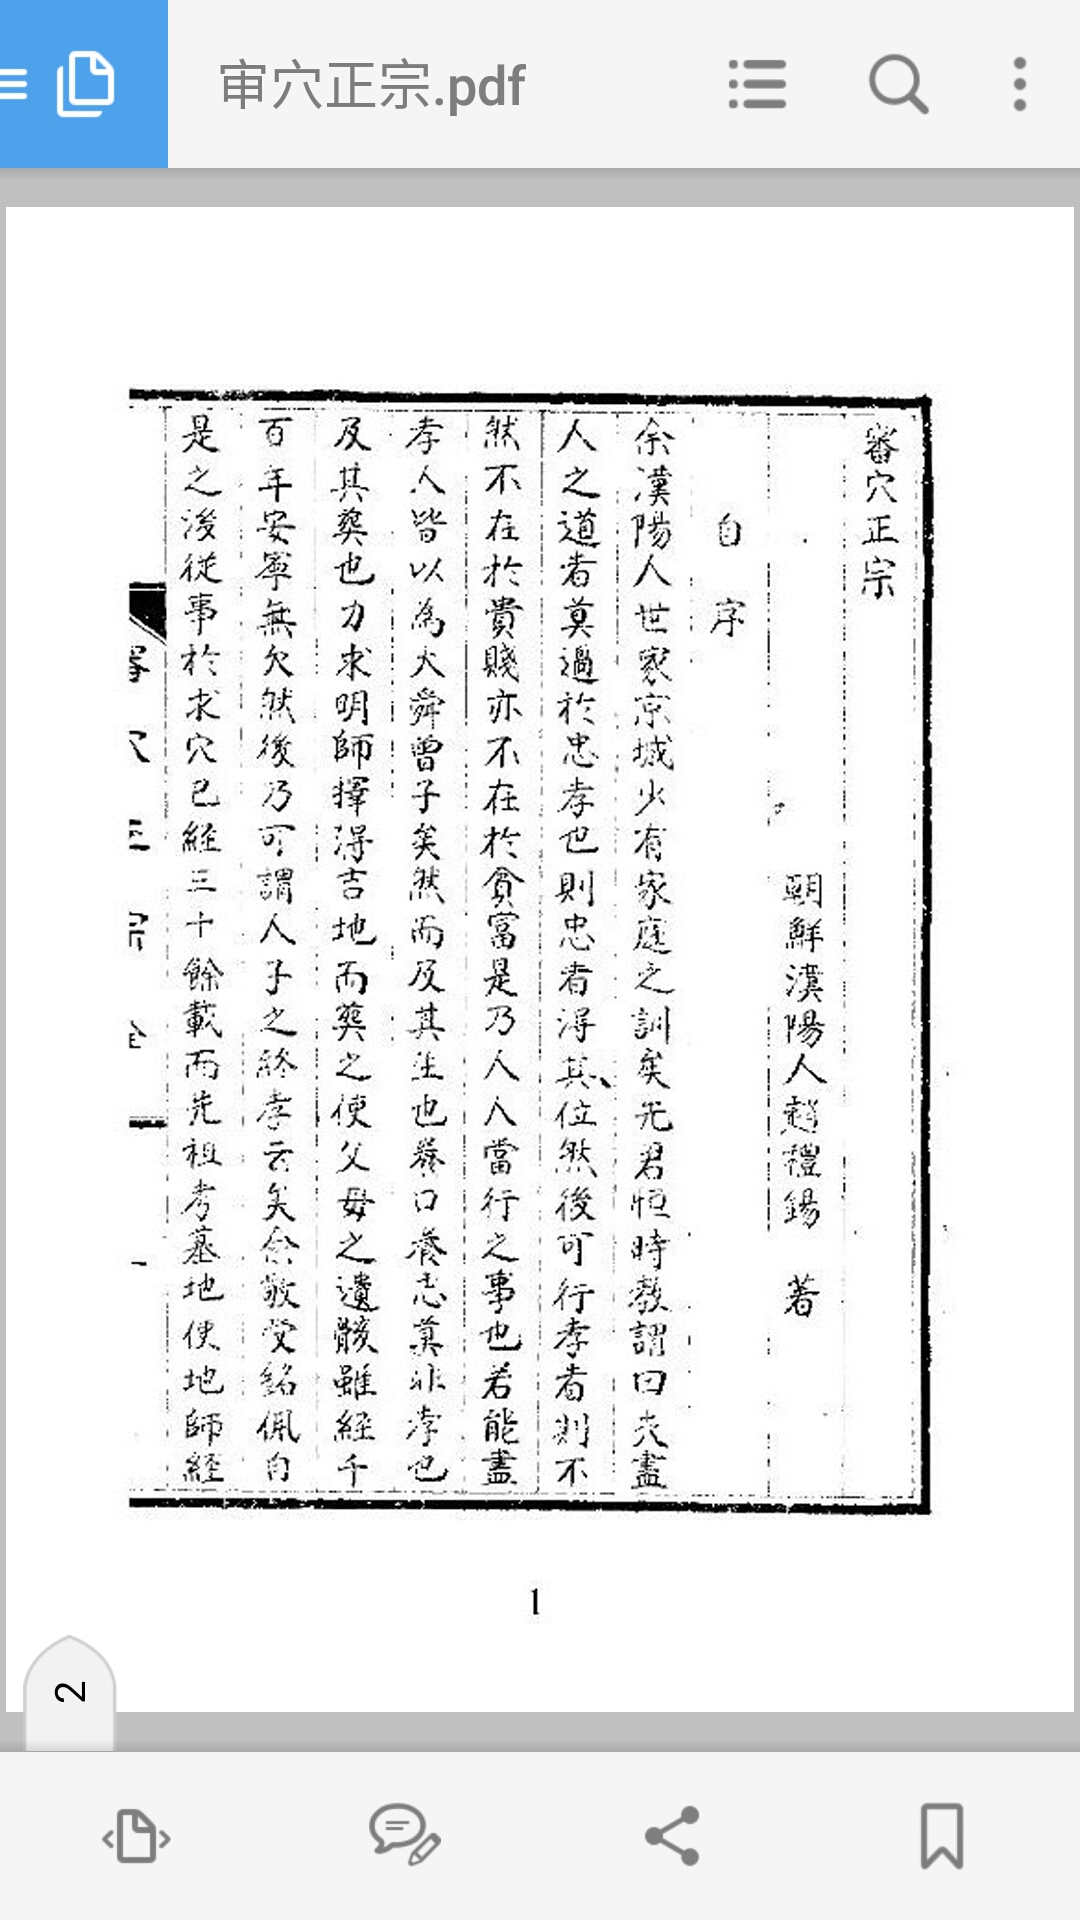 审穴正宗.pdf
審穴正宗
朝鮮漢陽人趙禮錫 著
自序
余漢陽人世家京城少有家庭之訓矣先君恒時教謂曰夫盡
人之道者莫過於忠孝也則忠者得其位然後可行孝者則不
然不在於貴賤亦不在於貧富是乃人人當行之事也若能盡
孝人皆以為大舜曾子矣然而及其生也養口養志莫非孝也
及其葬也力求明師擇得吉地而葬之使父母之遺骸雖經千
百年安寧無欠然後乃可謂人子之終孝云矣余敬受銘佩自
是之後從事於求穴已經三十餘載而先祖考墓地使地師經
審穴正宗 全 一
1
2